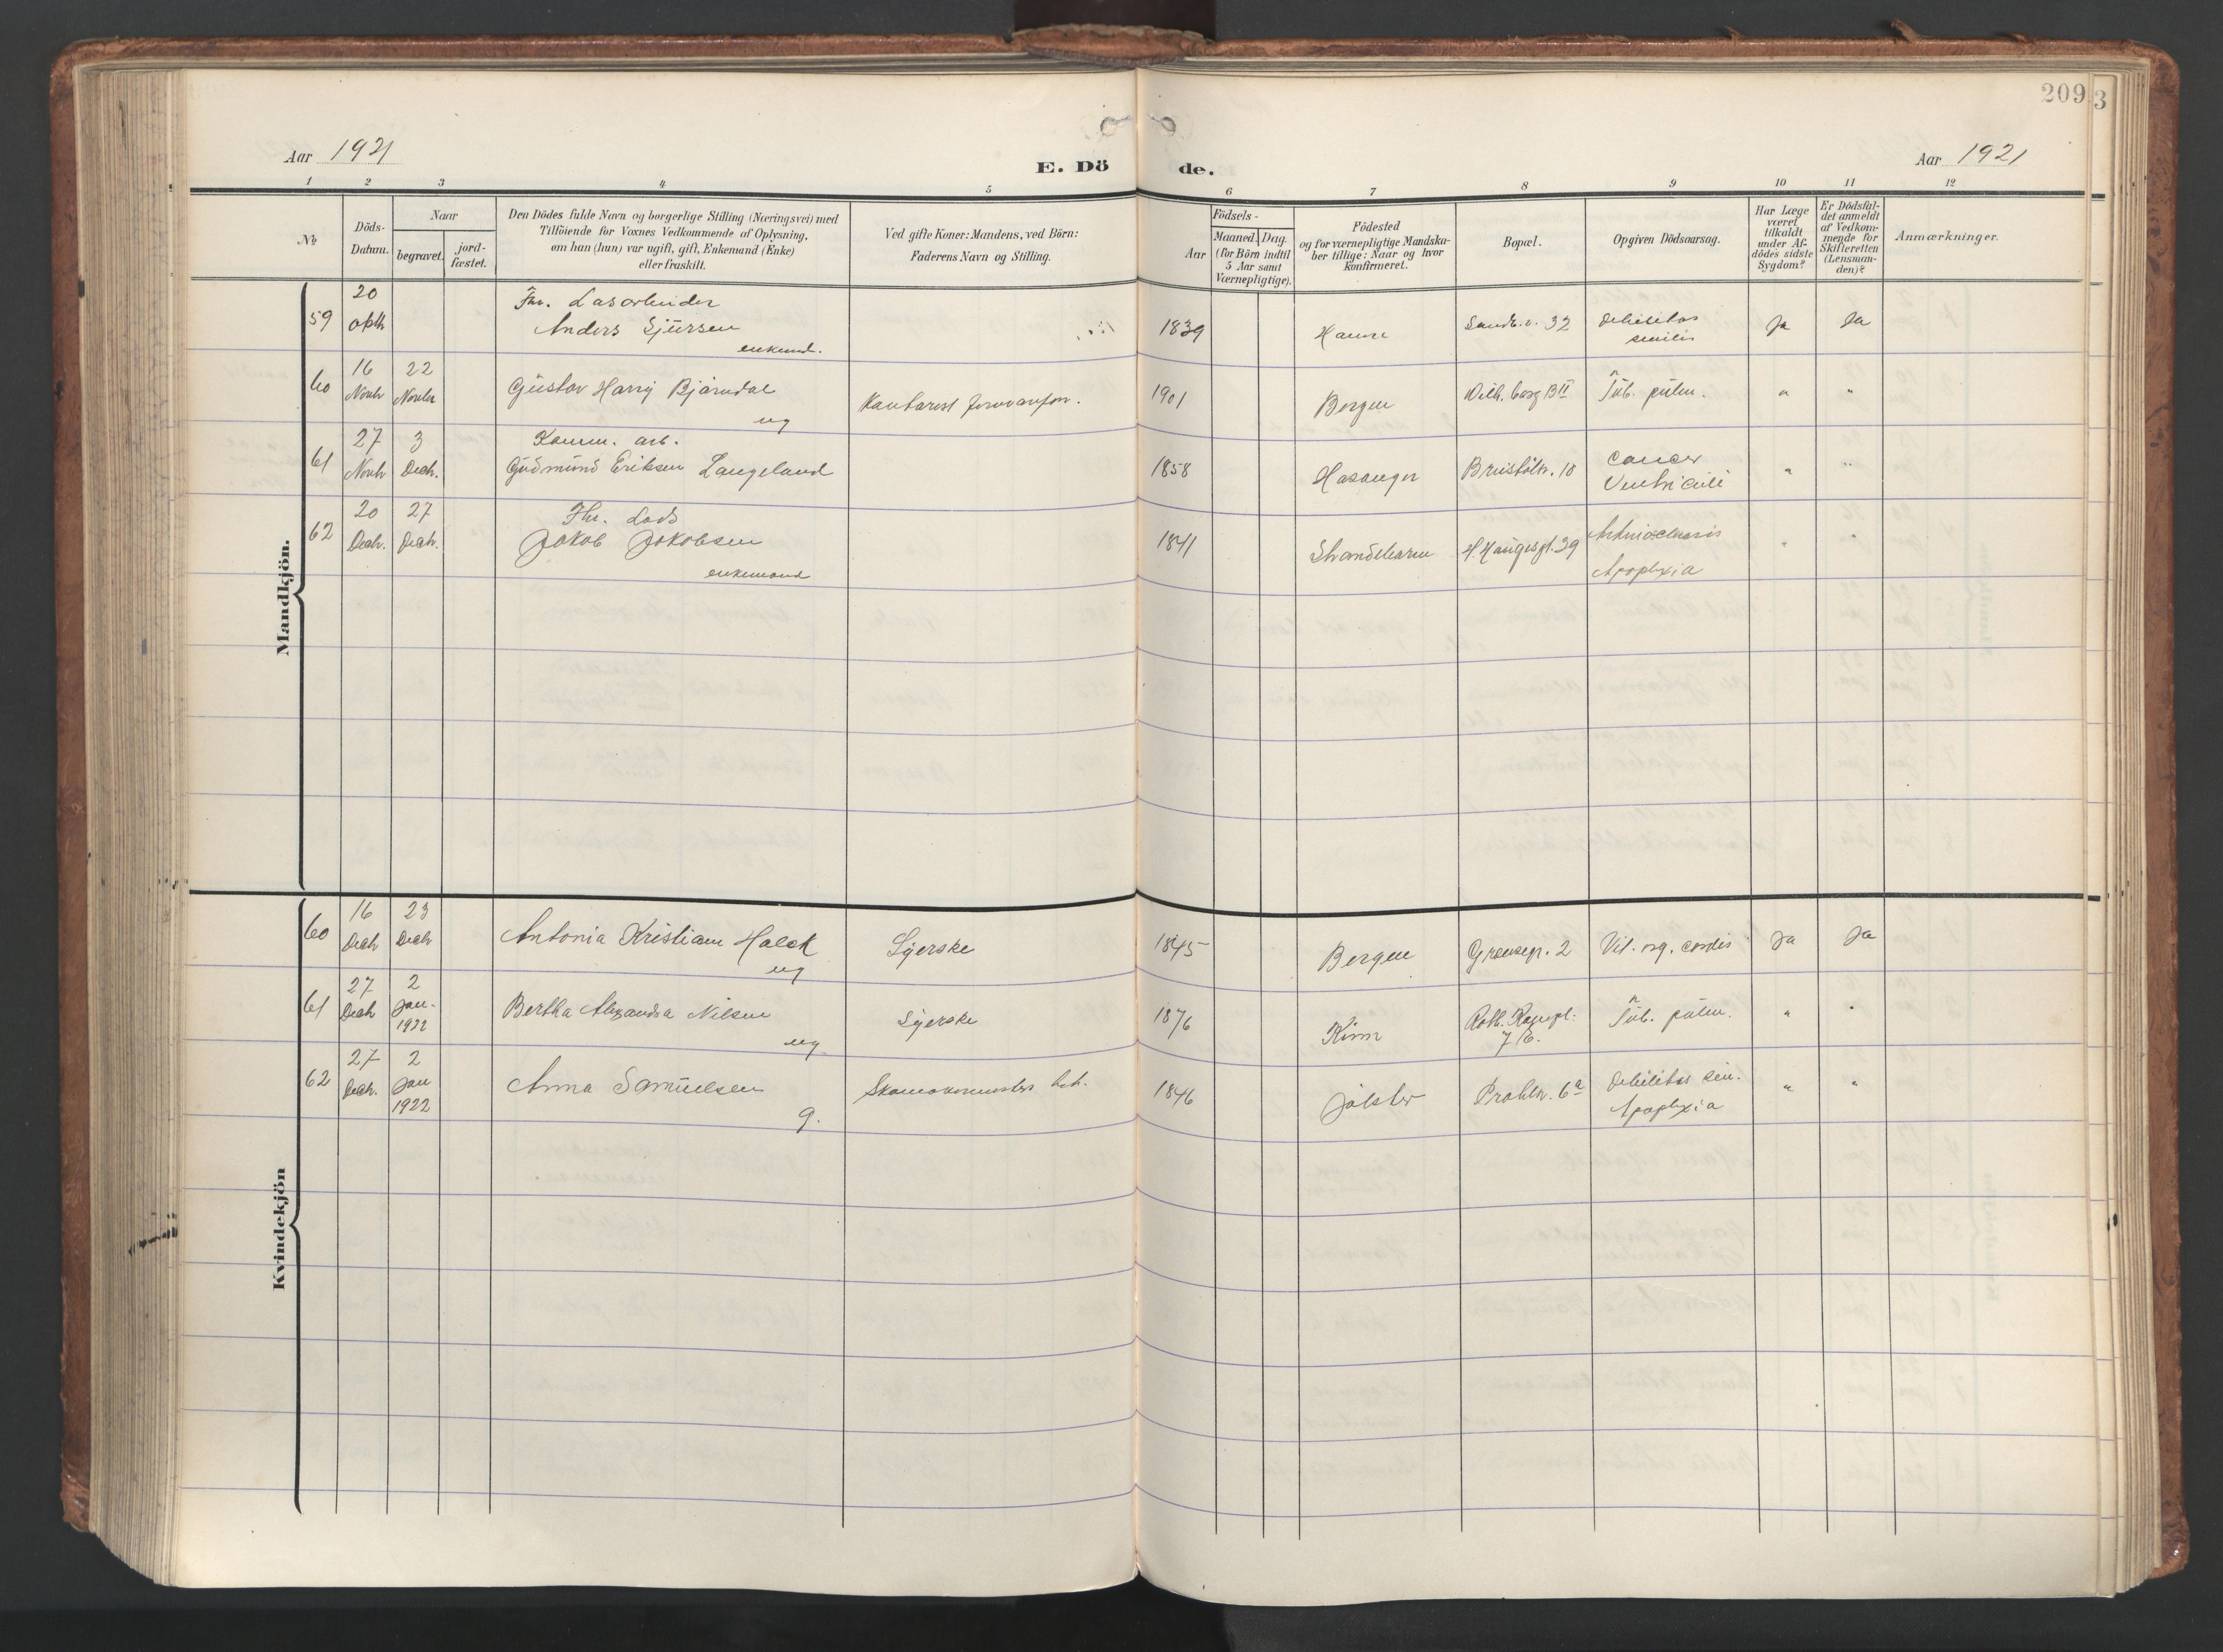 209 3
Aar 1921
E. Dö
de.
Aar 1921
1 2 3 4 5
6 7 8 9 10 11 12
No.
Döds-
Datum.
Naar
begravet.
jord-
fæstet.
Den Dödes fulde Navn og borgerlige Stilling (Næringsvei) med
Tilföiende for Voxnes Vedkommende af Oplysning,
om han (hun) var ugift, gift, Enkemand (Enke)
eller fraskilt.
Ved gifte Koner: Mandens, ved Börn:
Faderens Navn og Stilling.
Födsels-
Aar
Maaned.
Dag.
(for Börn indtil
5 Aar samt
Værnepligtige).
Födested
og for værnepligtige Mandska-
ber tillige: Naar og hvor
konfirmeret.
Bopæl.
Opgiven Dödsaarsag.
Har Læge
været
tilkaldt
under Af-
dödes sidste
Sygdom?
Er Dödsfal-
det anmeldt
af Vedkom-
mende for
Skifteretten
(Lensman-
den)?
Anmærkninger.
Mandkjön.
59
20
Fhr.
Anders Sjursen
enkemd.
1839
32
debilitas
senilis
Ja
Ja
60
16
Novbr
22
Novbr
Gustav Harry Bjørndal
ug
1901
Bergen
Tub. pulm.
"
"
61
27
Novbr
3
Decb.
Komm. arb.
Gudmund Eriksen Langeland
1858
Cancer
Ventriculi
"
"
62
20
Decb.
27
Decb.
Fhr. Lods
Jakob Jakobsen
enkemand
1841
Strandebarm
H. Haugesgt. 39
Apoplexia
"
"
Kvindekjön
60
16
Decb
23
Decb
Antonia Kristiane Halck
ug
Syerske
1845
Bergen
2
Vit. org. cordis
Ja
Ja
61
27
Decb
2
Jan.
1922
Bertha Alexandra Nilsen
ug
Syerske
1876
Kinn
Tub. pulm.
"
"
62
27
Decb.
2
Jan
1922
Anna Samuelsen
g.
1846
Jølster
6a
debilitas sen.
Apoplexia
"
"